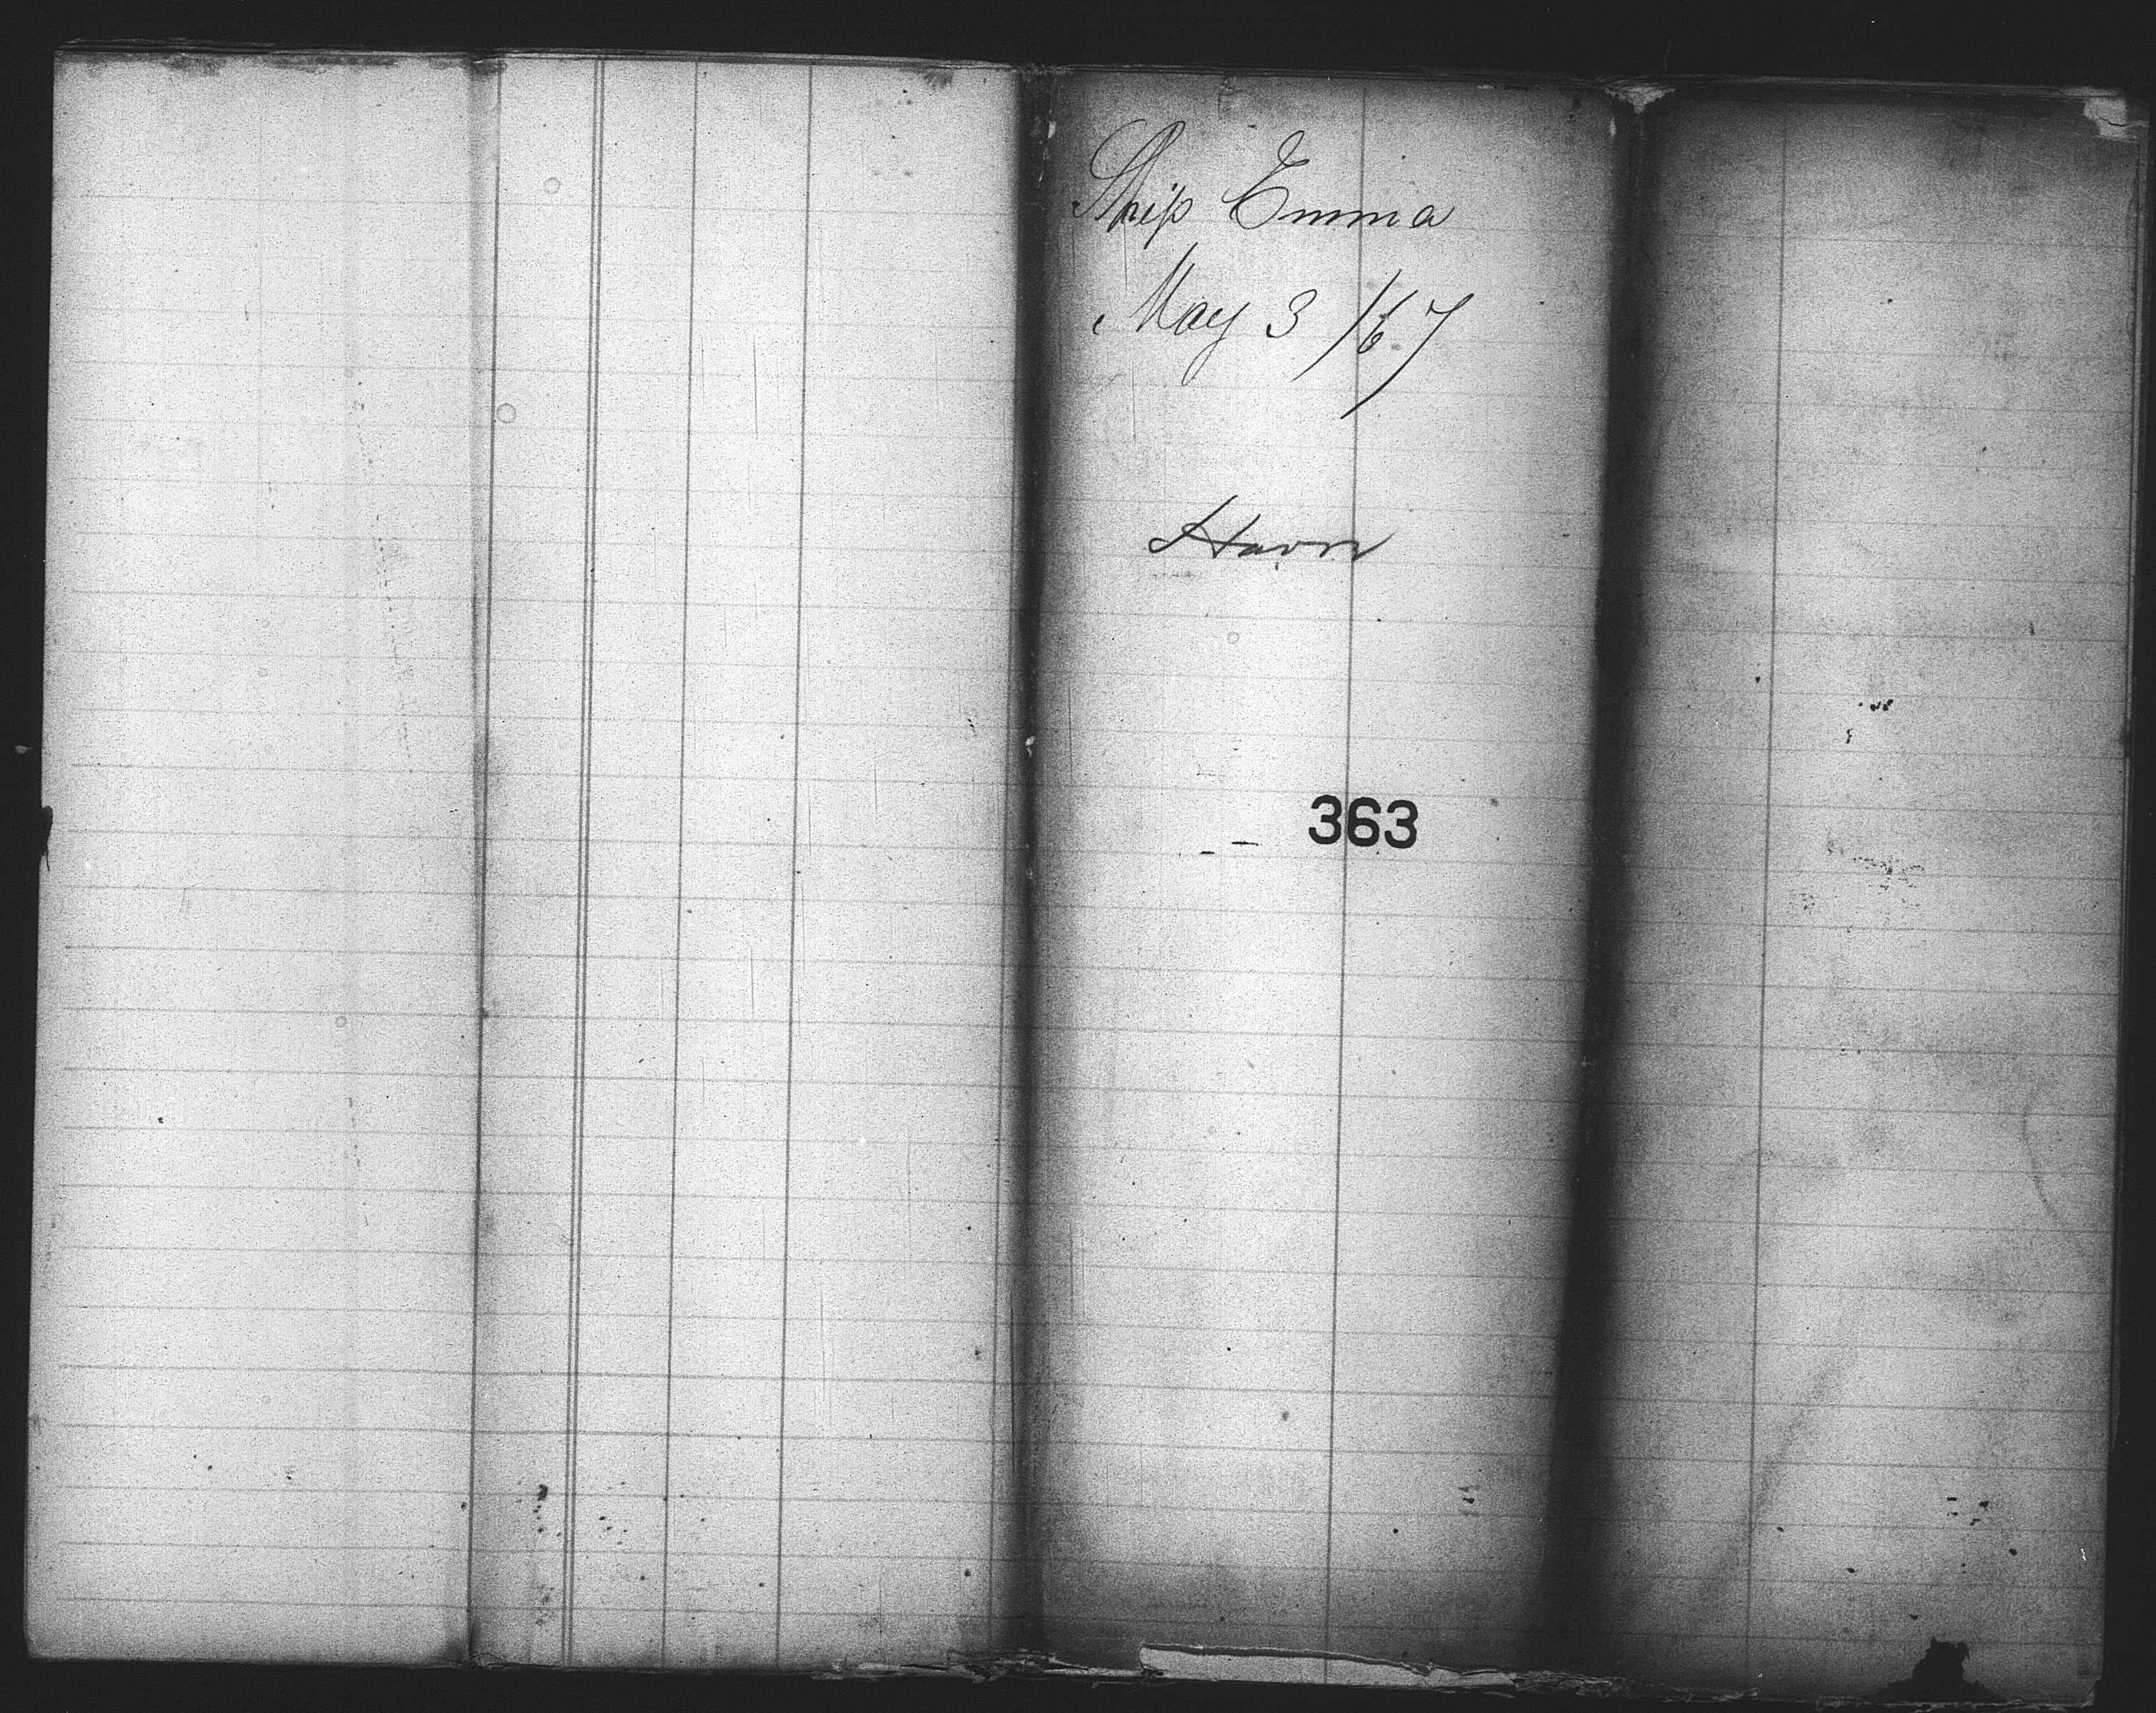 Ship Emma
May 3 /67
Havre
363